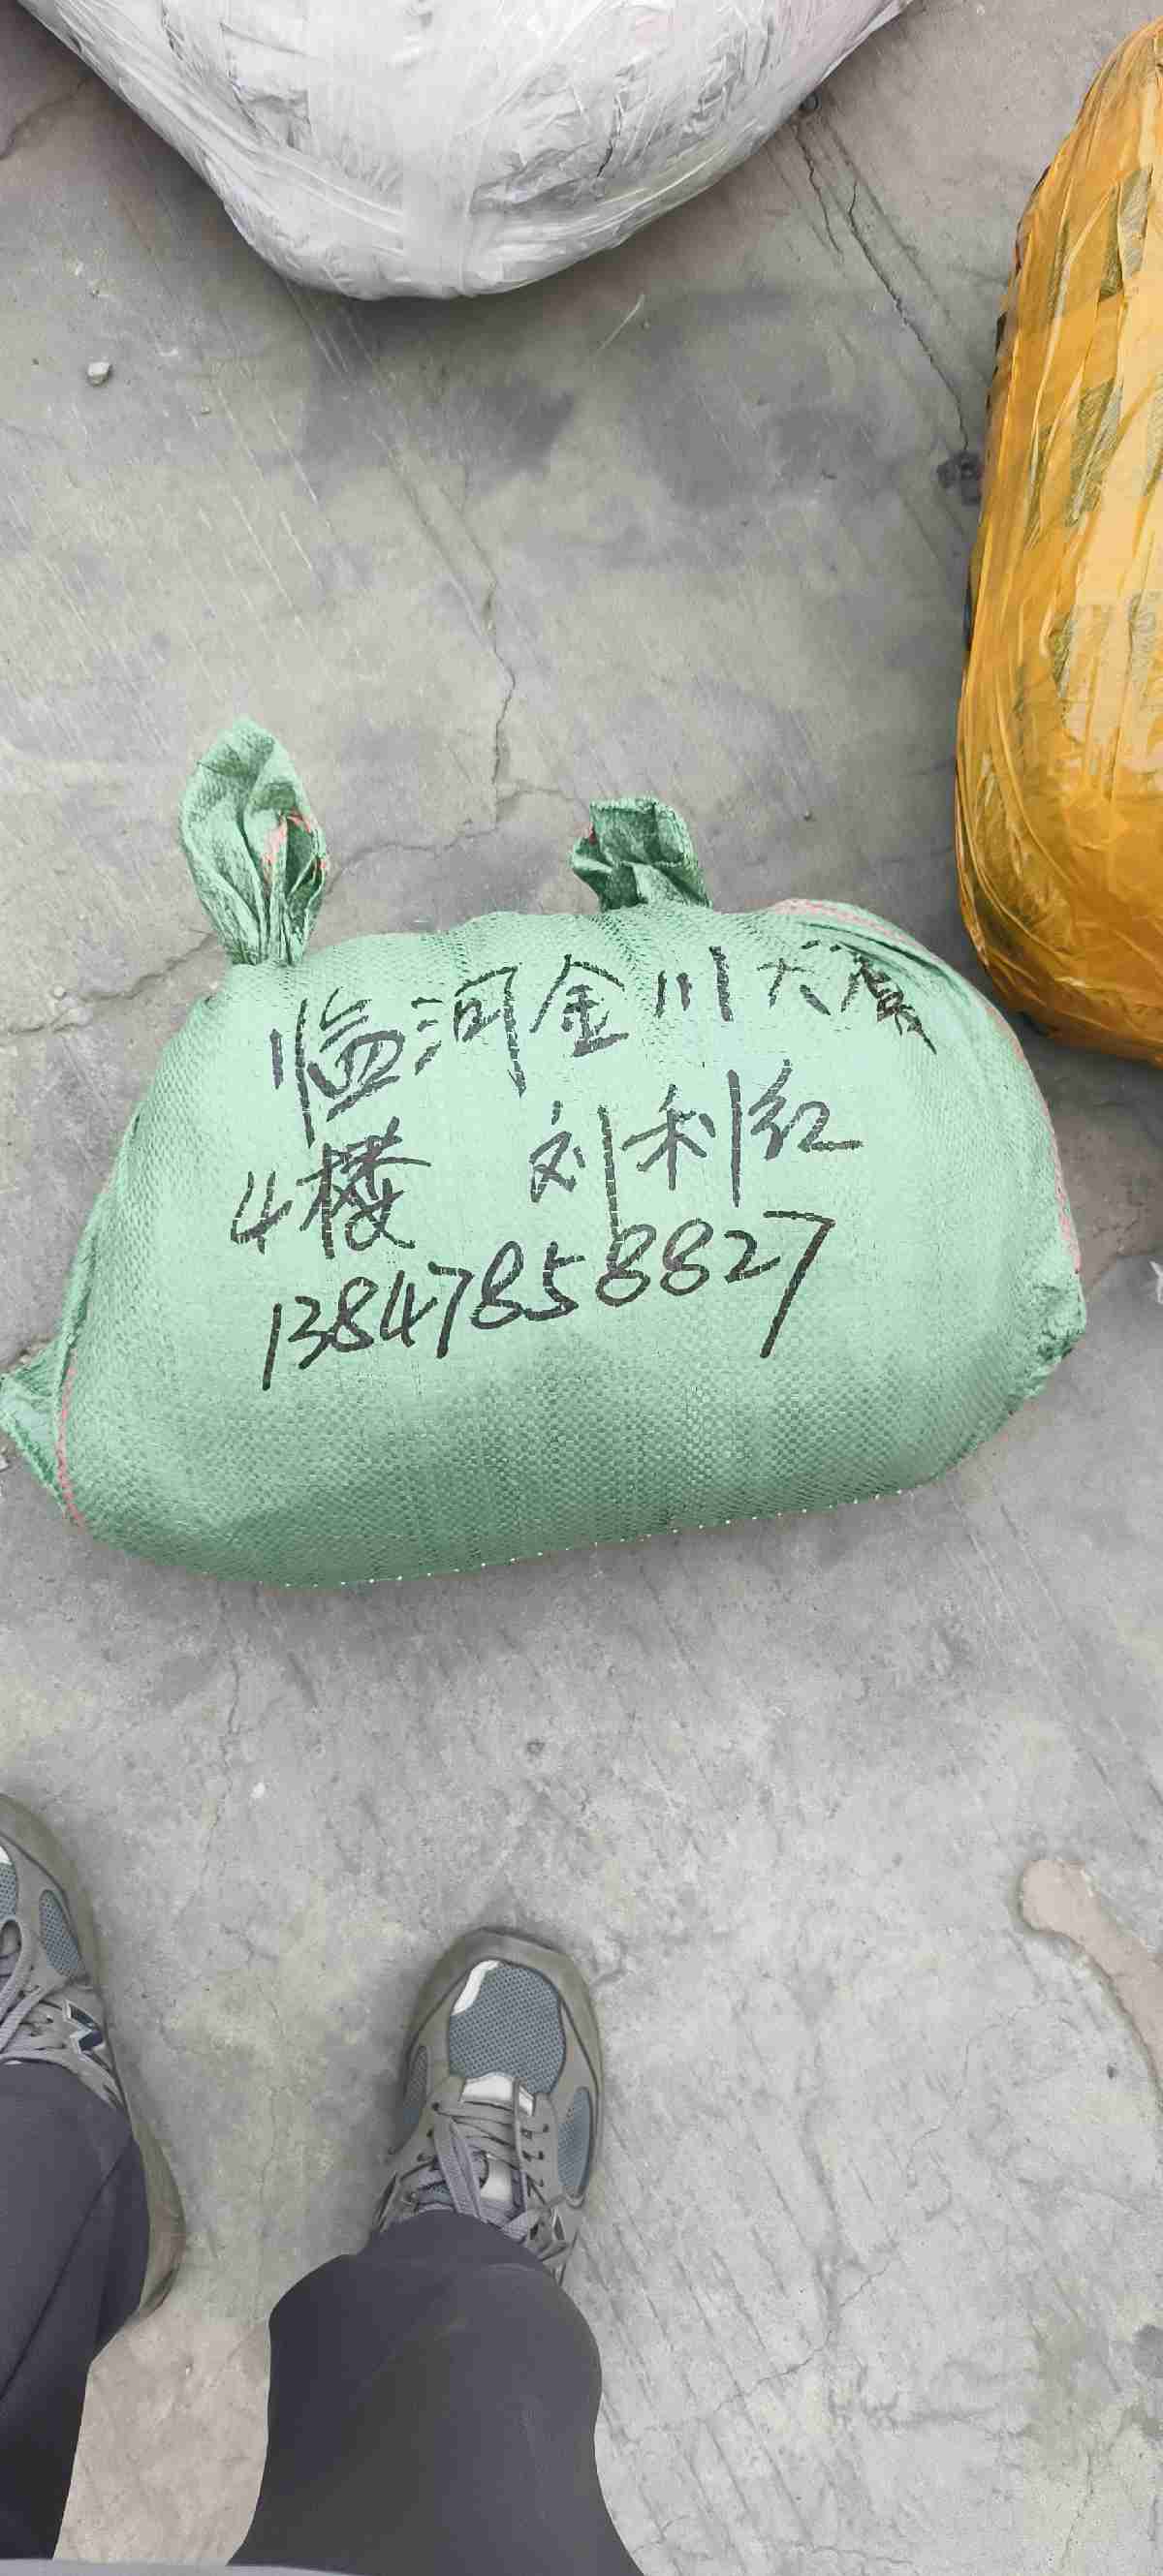 临河金川大厦
4楼 刘利红
13847858827